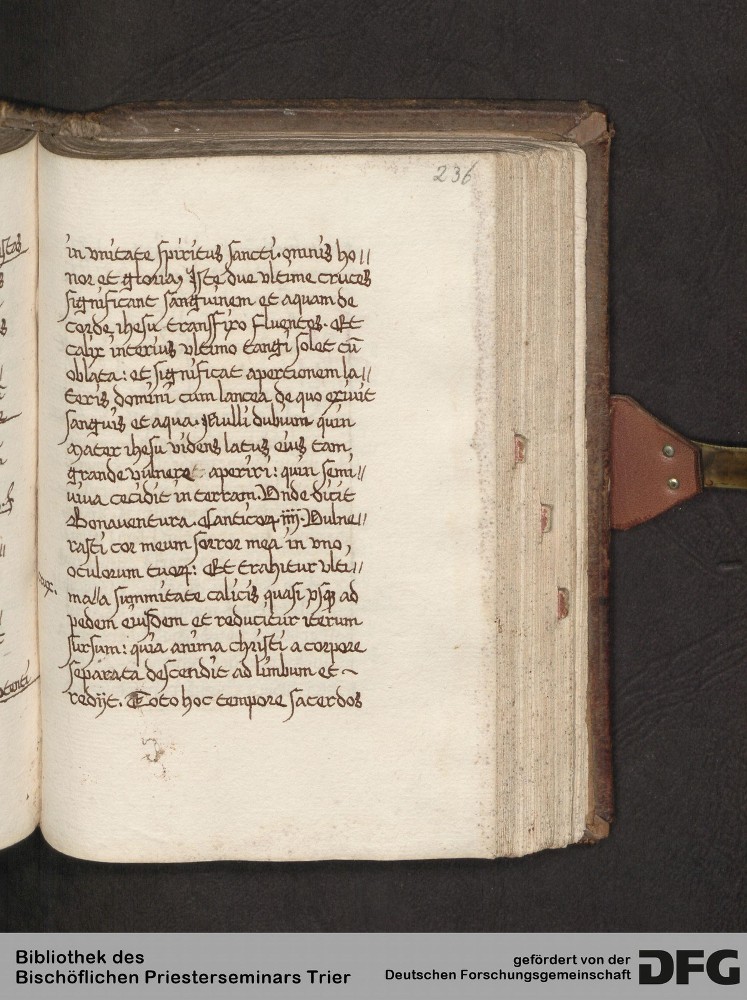 236
in vnitate spiritus sancti. omnis ho//
nor et gloria, Iste due vltime cruces
significant sanguinem et aquam de
corde ihesu transfixo fluentes. Et
calix interius vltimo tangi solet cū
oblata: et significat apertionem la//
teris domini cum lancea de quo exiuit
sanguis et aqua. Nulli dubium quin
Mater ihesu videns latus eius tam
grande vulnere aperiri: quin semi//
viua cecidit in terram. Vnde dicit
Bonauentura. Canticoꝝ iiij. Vulne//
rasti cor meum sorror mea in vno,
oculorum tuoꝝ: Et trahitur vlti//
ma//a summitate calicis quasi vsqꝫ ad
pedem eiusdem et reducitur iterum
sursum: quia anima christi a corpore
separata descendit ad limbum et ~
redijt. Toto hoc tempore sacerdos
Bibliothek des
Bischöflichen Priesterseminars Trier
gefördert von der
Deutschen Forschungsgemeinschaft
DFG